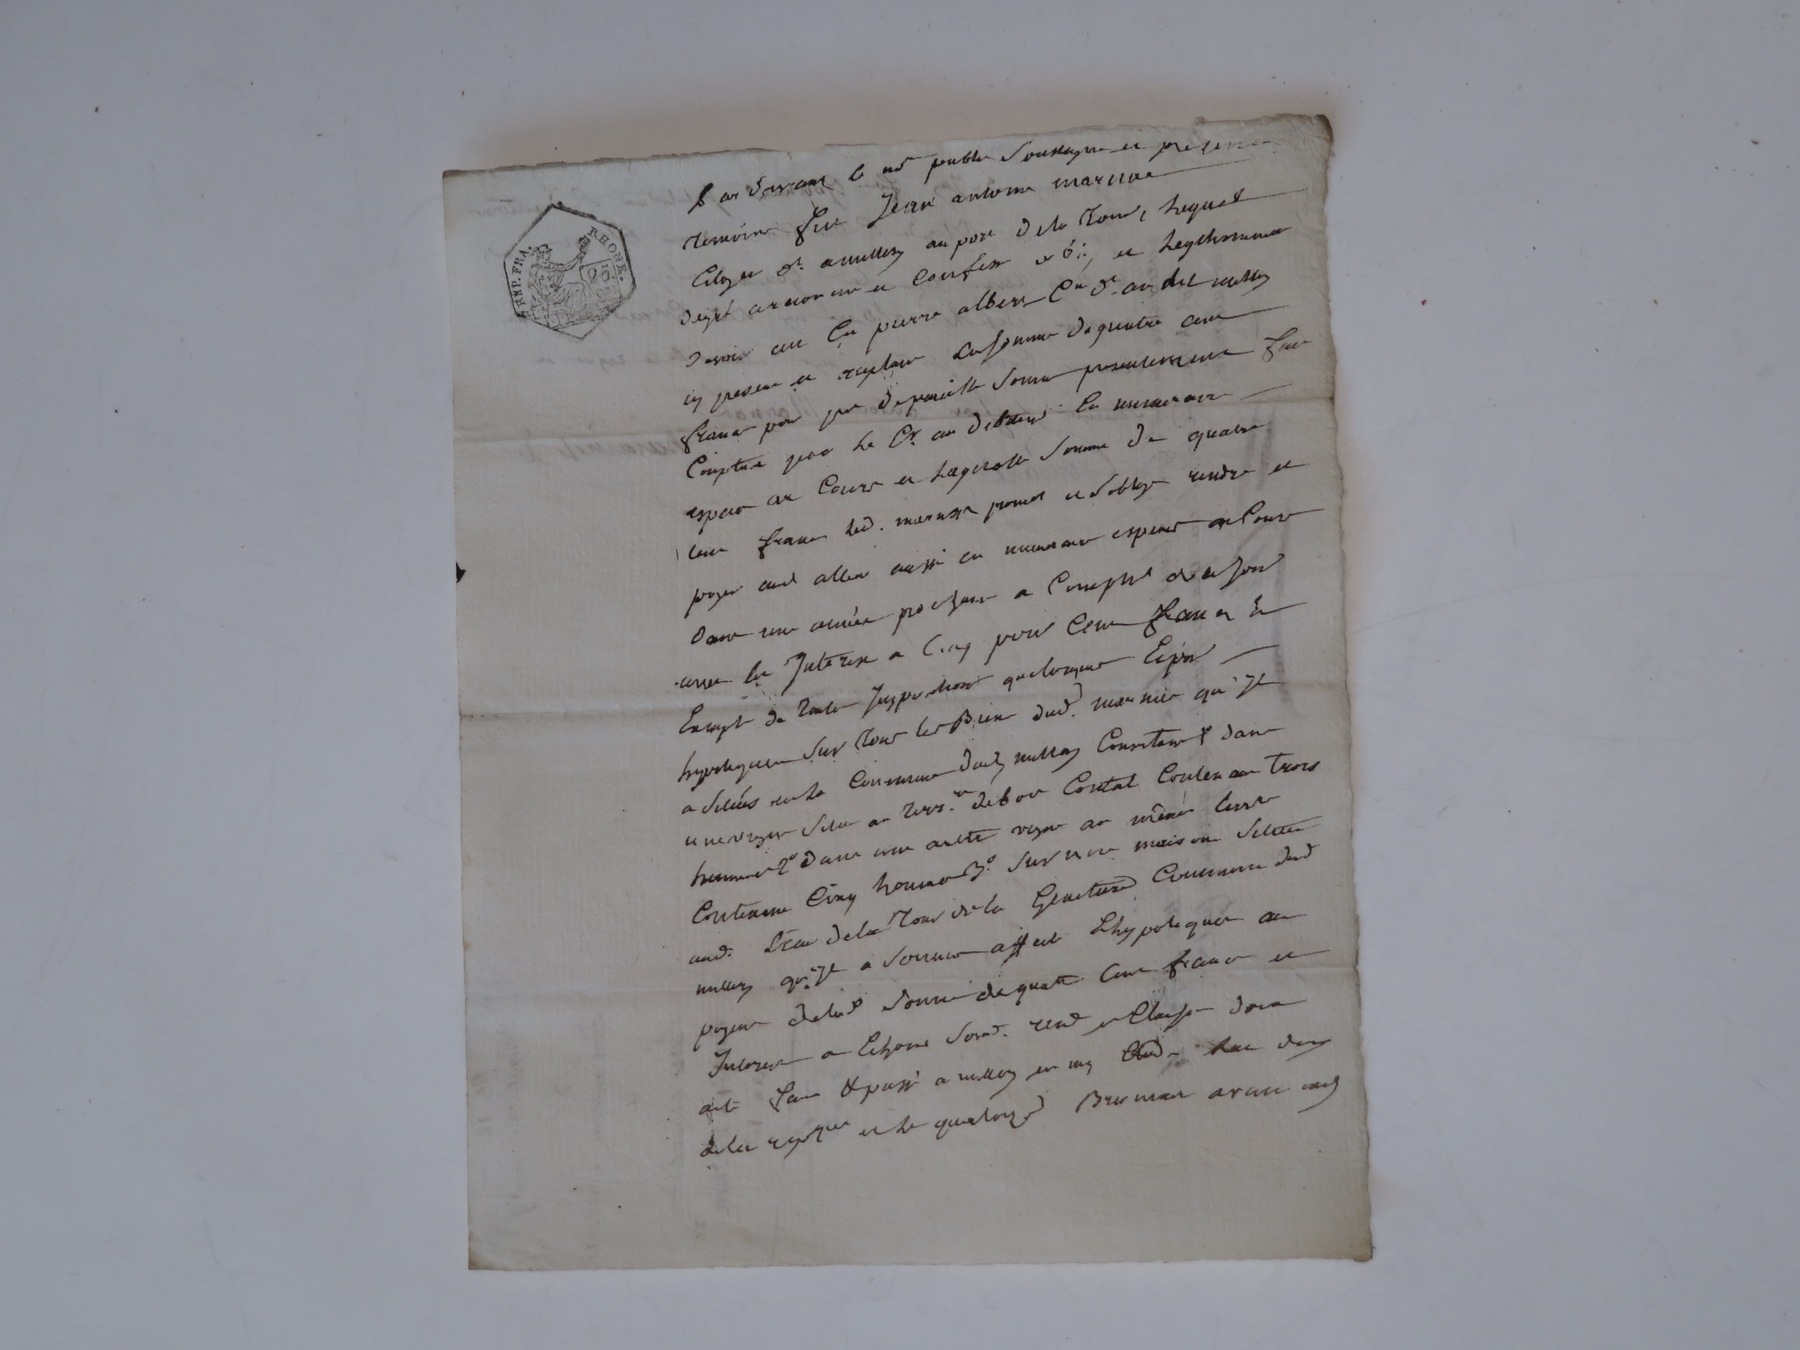 REP. FRA. RHONE.
25
Par devant le no.re public soussigné et présence
temoins fut Jean antoine marinier
Citoyen dt. a millery au port de la Tour, Lequel
degré a reconnu et confessé
devoir au Cn pierre albert Cn dt. au dit millery
cy present et acceptant La somme de quatre cent
francs pour pret de pareille somme presentement fait
Compté par le Cr. au debiteur En numeraire
especes au Cours et Laquelle somme de quatre
Cent francs led. marinier promet et soblige rendre et
payer aud. albert aussi en numeraire especes au Cours
dans une année prochaine a Compter de ce jour
avec les Interets a Cinq pour Cent francs et
Exempt de toute Imposition quelconque
hypotequée sur tous les Biens dud. marinier qu'il
a situés en la Commune dud. millery Consistant dans
une vigne située au terr.re de bois Contal Contenant trois
hommes 2o dans une autre vigne au même terr.re
Contenant Cinq hommes 3o sur une maison située
aud. Lieu de la Tour de la Commune dud.
millery qu'il a soumis affecté & hypotequé au
payement de lad. somme de quatre Cent francs et
Interets a Echoir
acte fait & passé a millery en my Etude Lan dix
de la rep.que et le quatorze Brumaire avant midy